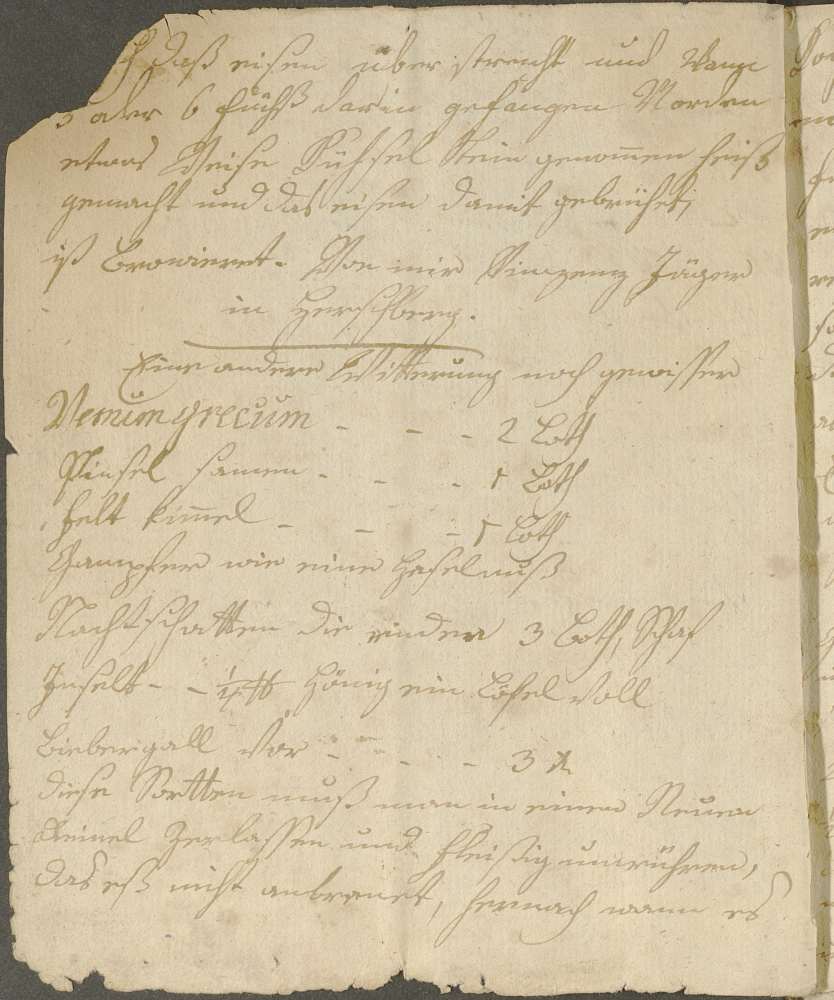 daß eisen über streicht und wann
5 oder 6 füchß darin gefangen Worden
etwas Weise Küßel Stein genomen heiß
gemacht und das eisen damit gebrühet,
ist Browieret. Von mir Vinzenz Jäger
in Herschberg.
Eine andere Witterung noch gewisser
Venum grecum - - - 2 Loth
Pinsel samen - - - 1 Loth
felt kimel - - - 1 Loth
Gampfer wie eine Haselnuß
Nachtschatten die rinden 3 Loth, Schaf
Inselt - - ¼ ℔ Hönig ein Löfel voll
Biebergall vor - - - - 3 x
diese Sortten muß man in einem Neuen
Reinel Zerlassen und fleissig umrühren,
das eß nicht anbrenet, hernach wann es